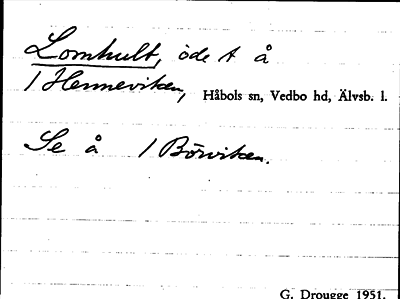 Lomhult, öde t å
1 Henneviken, Håbols sn, Vedbo hd, Älvsb. l.
Se å 1 Börviken.
G. Drougge 1951.